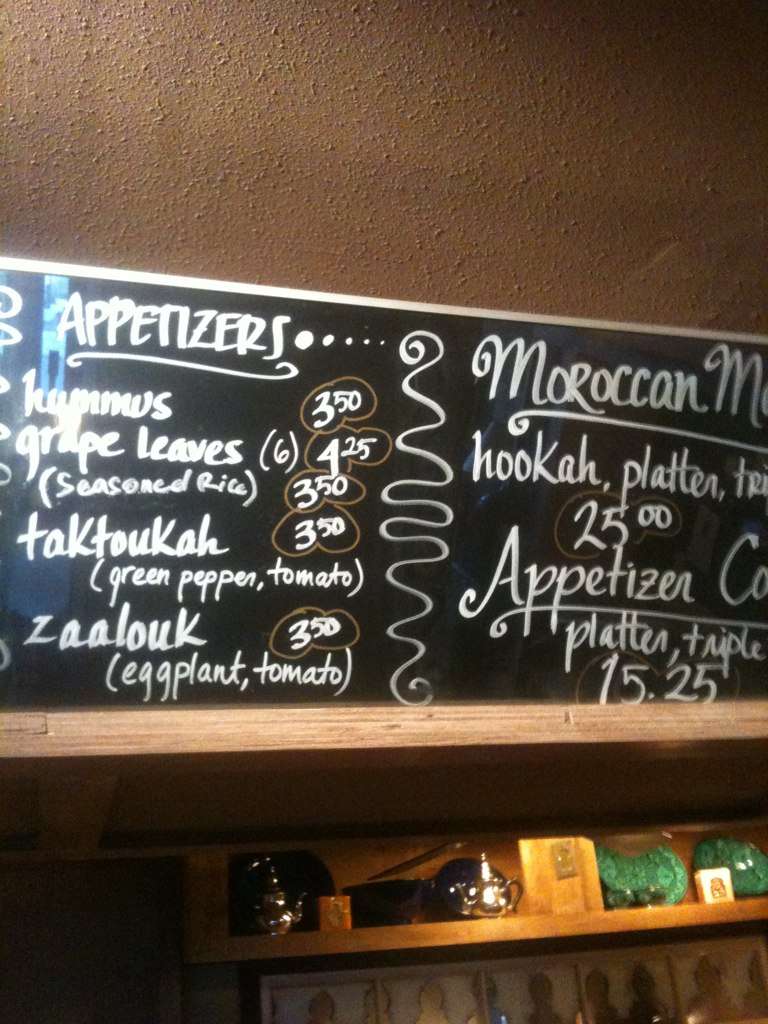 APPETIZERS.....
hummus 3.50
grape leaves (6) 4.25
(Seasoned Rice) 3.50
taktoukah 3.50
(green pepper, tomato)
zaalouk 3.50
(eggplant, tomato)
MOROCCAN
hookah, platter,
25.00
Appetizer
platter, triple
15.25